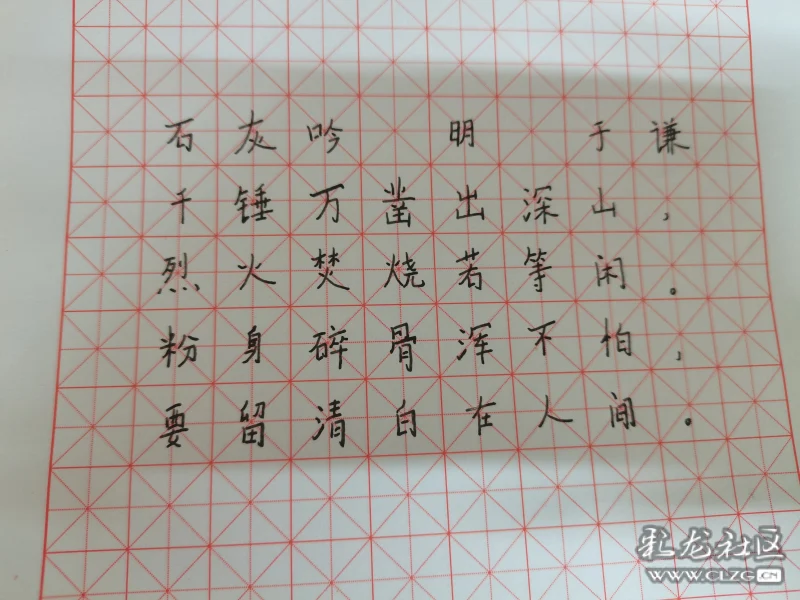 石灰吟 明 于谦
千锤万凿出深山，
烈火焚烧若等闲。
粉身碎骨浑不怕，
要留清白在人间。
彩龙社区
www.CLZG.CN